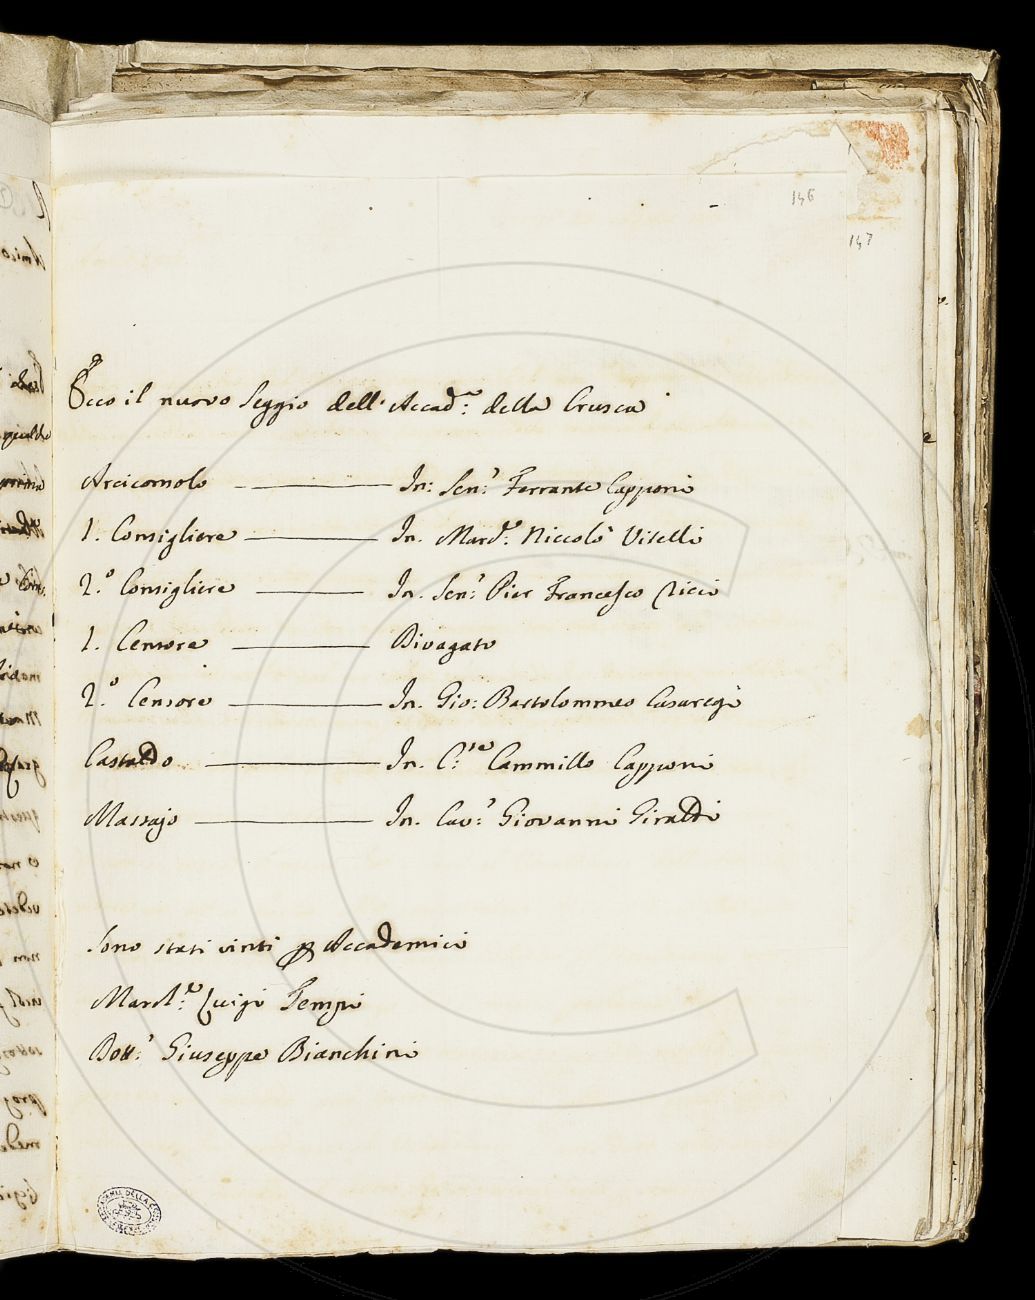 146
147
Ecco il nuovo Seggio dell'Accad.a della Crusca
Arciconsolo — In: Sen.r Ferrante Capponi
1. Consigliere — In. March.e Niccolò Vitelli
2.o Consigliere — In. Sen.r Pier Francesco Ricci
1. Censore — Divagato
2.o Censore — In. Gio: Bartolommeo Casaregi
Castaldo — In. C.te Cammillo Capponi
Massajo — In. Cav.r Giovanni Giraldi
Sono stati vinti p Accademici
March.e Luigi Tempi
Dott.r Giuseppe Bianchini